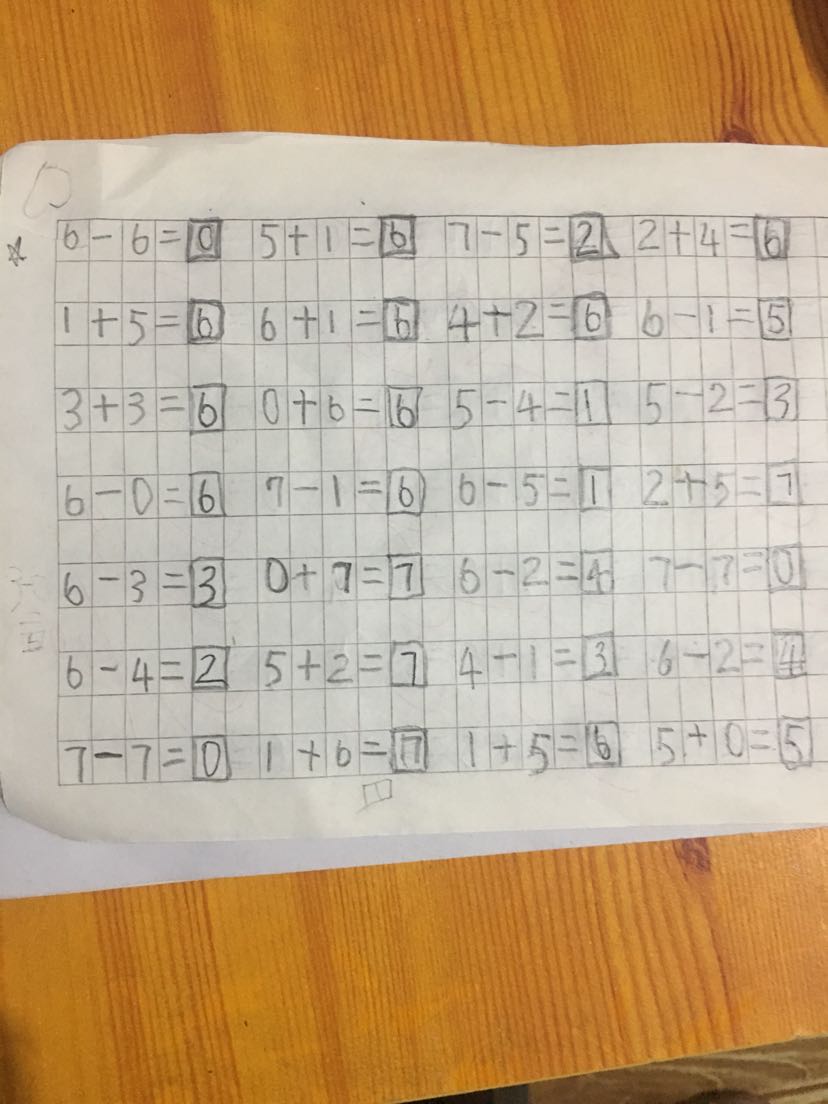 6-6=0 5+1=6 7-5=2 2+4=6
1+5=6 6+1=6 4+2=6 6-1=5
3+3=6 0+6=6 5-4=1 5-2=3
6-0=6 7-1=6 6-5=1 2+5=7
6-3=3 0+7=7 6-2=4 7-7=0
6-4=2 5+2=7 4-1=3 6-2=4
7-7=0 1+6=7 1+5=6 5+0=5